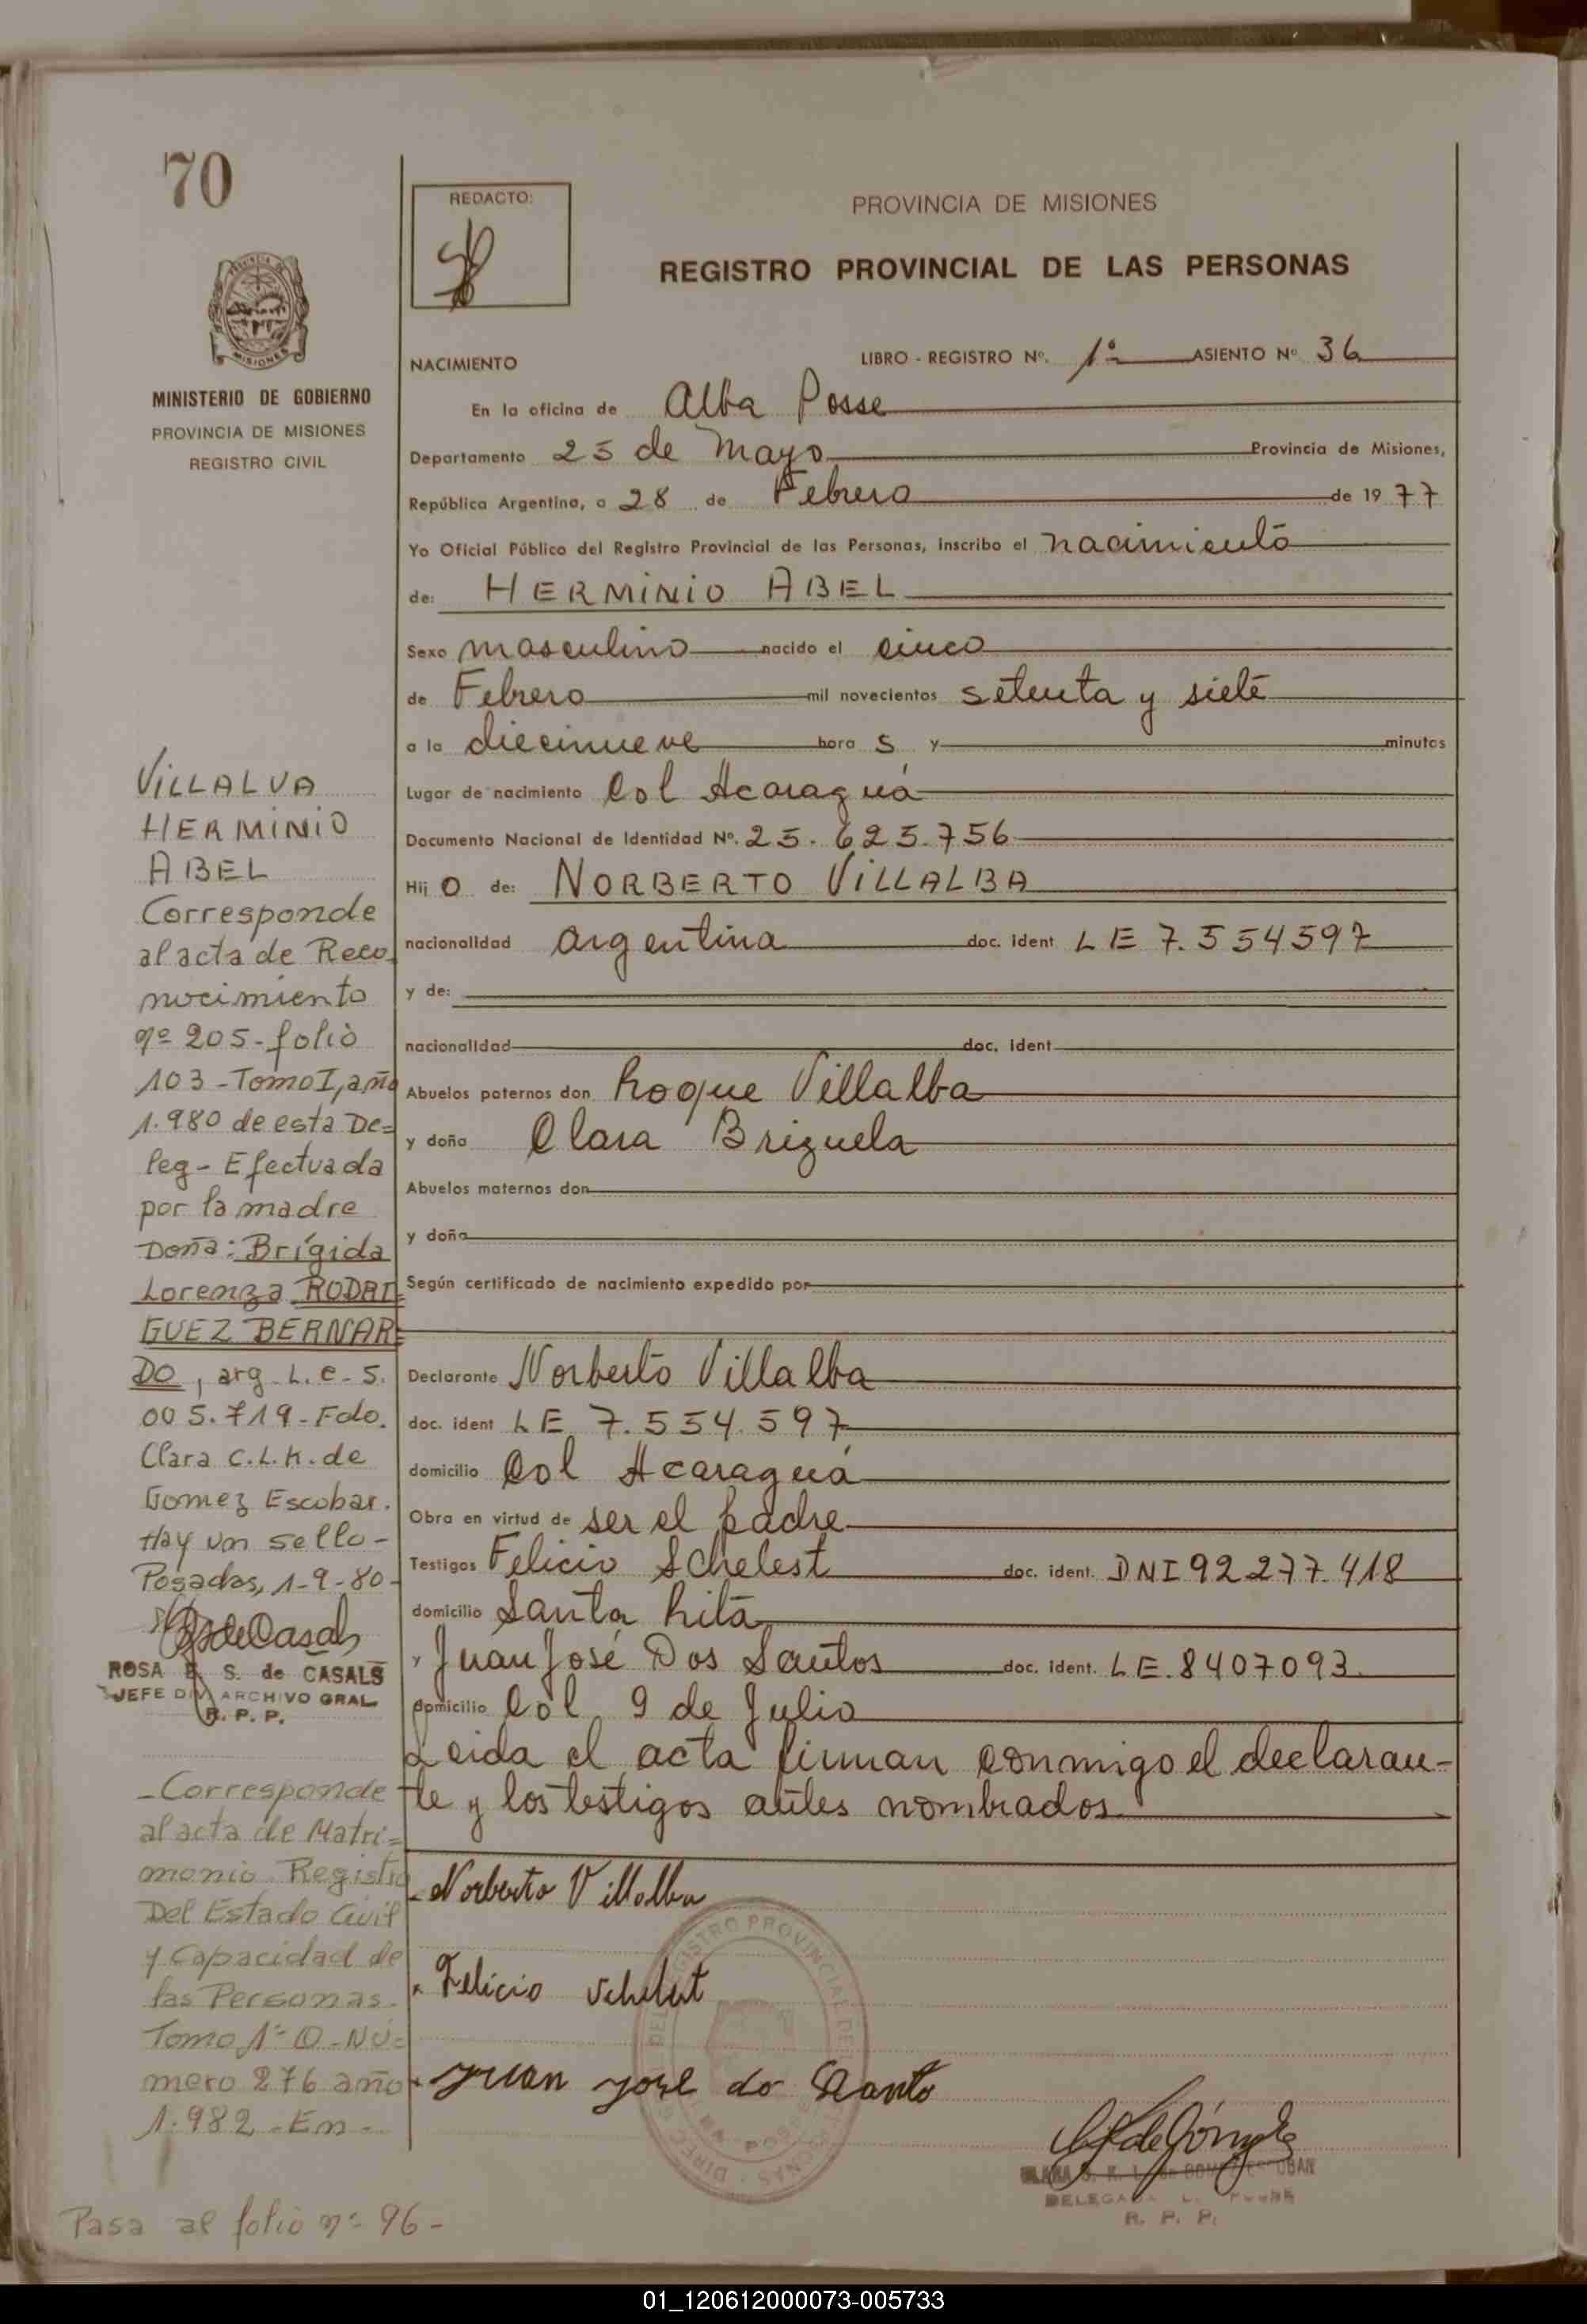 70
REDACTO:
PROVINCIA DE MISIONES
REGISTRO PROVINCIAL DE LAS PERSONAS
MISIONES
MINISTERIO DE GOBIERNO
PROVINCIA DE MISIONES
REGISTRO CIVIL
NACIMIENTO
LIBRO - REGISTRO Nº. 1º ASIENTO Nº 36
En la oficina de Alba Posse
Departamento 25 de Mayo Provincia de Misiones,
República Argentina, a 28 de Febrero de 1977
Yo Oficial Público del Registro Provincial de las Personas, inscribo el nacimiento
de: HERMINIO ABEL
Sexo masculino nacido el cinco
de Febrero mil novecientos setenta y siete
a la diecinueve hora s y minutos
Lugar de nacimiento Col Acaraguá
Documento Nacional de Identidad Nº. 25.625.756
Hij o de: NORBERTO VILLALBA
nacionalidad argentina doc. ident LE 7.554597
y de:
nacionalidad doc. ident
Abuelos paternos don Roque Villalba
y doña Clara Brizuela
Abuelos maternos don
y doña
Según certificado de nacimiento expedido por
Declarante Norberto Villalba
doc. ident LE 7.554.597
domicilio Col Acaraguá
Obra en virtud de ser el padre
Testigos Felicio Schelest doc. ident. DNI 92.277.418
domicilio Santa Rita
y Juan José Dos Santos doc. ident. L.E. 8407093
domicilio Col 9 de Julio
Leida el acta firman conmigo el declaran-
te y los testigos antes nombrados.
Norberto Villalba
Felicio Schelest
Juan José do Santo
DELEGADA
R. P. P.
VILLALVA
HERMINIO
ABEL
Corresponde
al acta de Reco
nocimiento
nº 205-folio
103-Tomo I, año
1.980 de esta De=
leg- Efectuada
por la madre
Doña: Brígida
Lorenza RODRI=
GUEZ BERNAR=
DO, arg. L.C. 5.
005.719-Fdo.
Clara C.L.K. de
Gomez Escobar.
Hay un sello-
Posadas, 1-9-80-
ROSA E. S. de CASALS
JEFE DIV ARCHIVO GRAL
R. P. P.
-Corresponde
al acta de Matri=
monio Registro
Del Estado Civil
y Capacidad de
las Personas.
Tomo 1º D-Nú=
mero 276 año
1.982-En-
Pasa al folio nº 96-
01_120612000073-005733